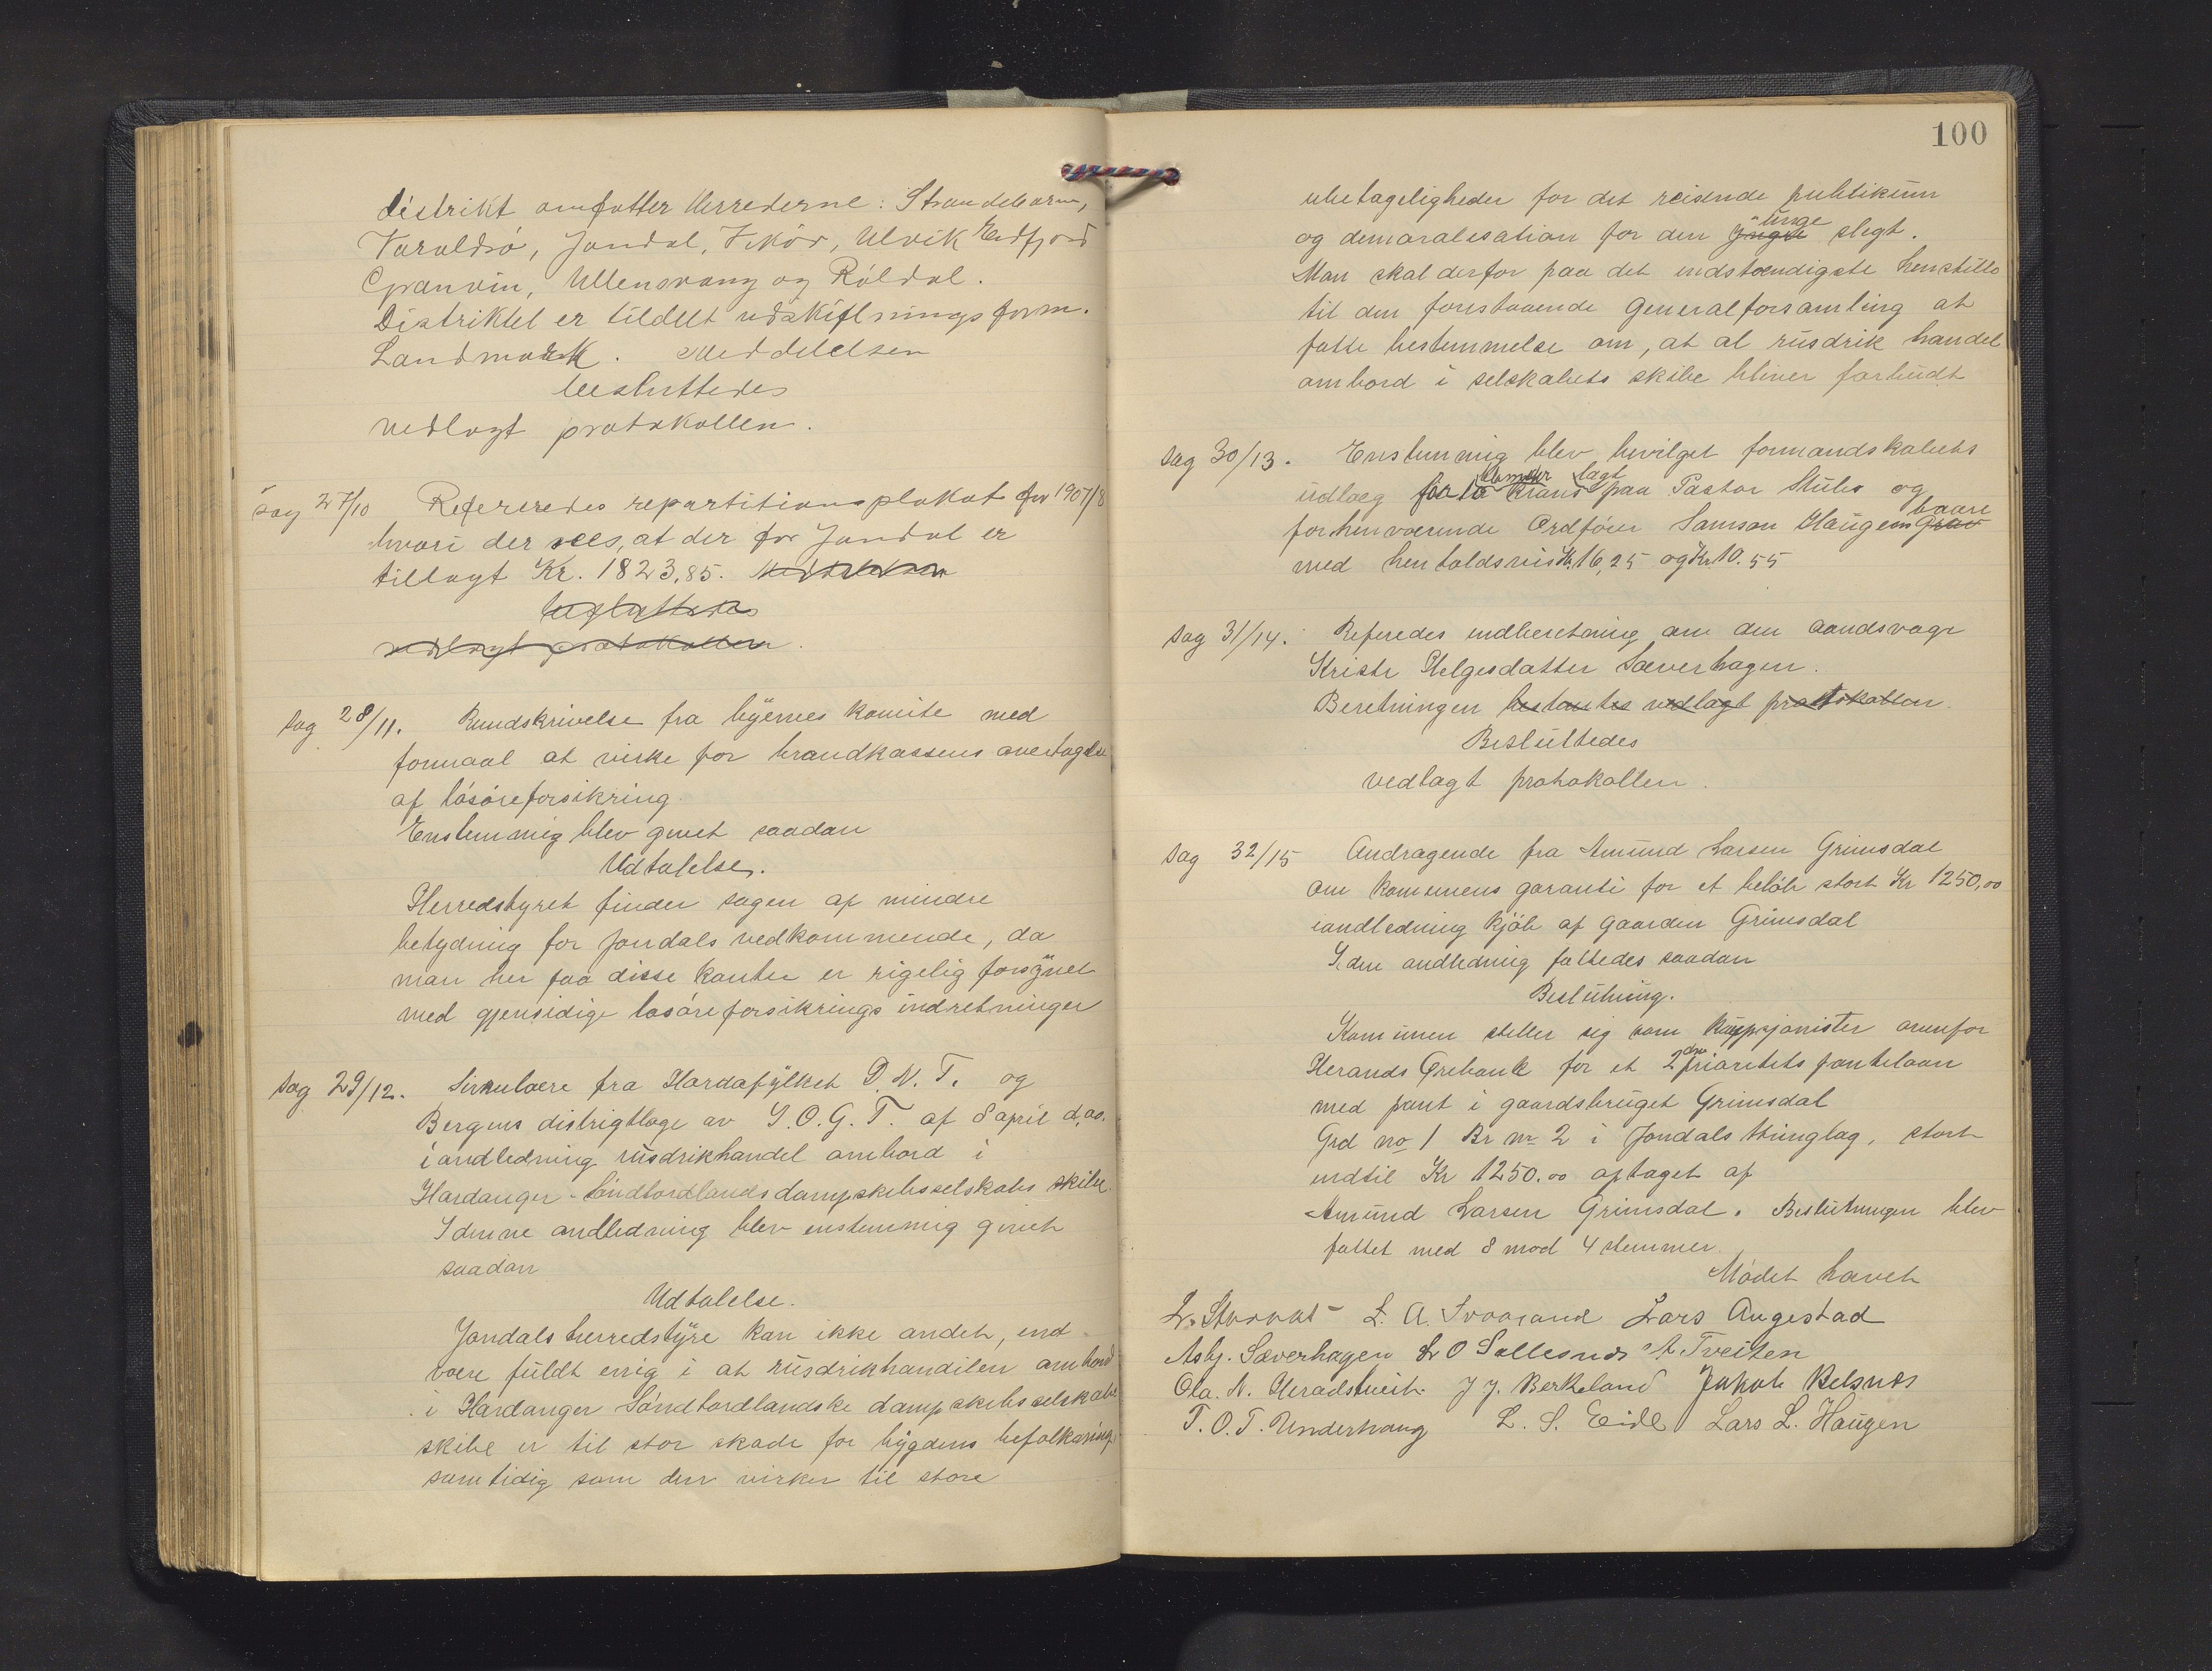 distrikt omfatter Herrederne: Strandebarm,
Varaldsö, Jondal, Vikör, Ulvik Eidfjord
Granvin, Ullensvang og Röldal.
Distriktet er tildelt udskiftningsform.
Landmark. Meddelelsen
besluttedes
vedlagt protokollen.
Sag 27/10 Refereredes repartitionsplakat for 1907/8
hvori der sees, at der for Jondal er
tillagt Kr. 1823,85. Meddelelsen
besluttedes
vedlagt protokollen.
Sag 28/11. Rundskrivelse fra byernes komite med
formaal at virke for brandkassens overtagelse
af lösöreforsikring.
Enstemmig blev givet saadan
Udtalelse.
Herredstyret finder sagen af mindre
betydning for Jondals vedkommende, da
man her paa disse kanter er rigelig forsynet
med gjensidige lösöreforsikrings indretninger
Sag 29/12. Sirkulære fra Hardafylket D. N. T. og
Bergens distrigtloge av I. O. G. T. af 8 april d.ao.
i andledning rusdrikhandel ombord i
Hardanger-Söndhordlands dampskibsselskabs skibe.
I denne andledning blev enstemmig givet
saadan
Udtalelse.
Jondals herredstyre kan ikke andet, end
være fuldt enig i at rusdrikhandelen ombord
i Hardanger Söndhordlandske dampskibsselskabs
skibe er til stor skade for bygdens befolkning,
samtidig som den virker til store
100
ubehageligheder for det reisende publikum
og demoralisation for den yngre unge slegt.
Man skal derfor paa det indstændigste henstille
til den forestaaende Generalforsamling at
fatte bestemmelse om, at al rusdrik handel
ombord i selskabets skibe bliver forbudt
Sag 30/13. Enstemmig blev bevilget formandskabets
udlæg for krans lagt paa Pastor Mules og
forhenværende Ordförer Samson Haugens Grav baare
med henholdsvis Kr. 16,25 og Kr. 10.55
Sag 31/14. Referedes indberetning om den aandsvage
Kristi Helgesdatter Sæverhagen.
Beretningen besluttes vedlagt protokollen.
Besluttedes
vedlagt protokollen.
Sag 32/15 Andragende fra Amund Larsen Grimsdal
om komunens garanti for et belöb stort Kr 1250,00
iandledning kjöb af gaarden Grimsdal
I den andledning fattedes saadan
Beslutning.
Komunen stiller sig som kausjonister ovenfor
Herands Örebank for et 2den prioritets pantelaan
med pant i gaardsbruget Grimsdal
Grd no 1 Br nr 2 i Jondals thinglag, stort
indtil Kr 1250.00 optaget af
Amund Larsen Grimsdal. Beslutningen blev
fattet med 8 mod 4 stemmer.
Mödet hævet
L. A. Svaasand Lars Augestad
Asbj. Sæverhagen L O Sollesnes A. Tveiten
Ola. N. Heradstveit. J J. Berkeland Jakob Belsnes
T. O. T. Underhaug L. S. Eide Lars L. Haugen